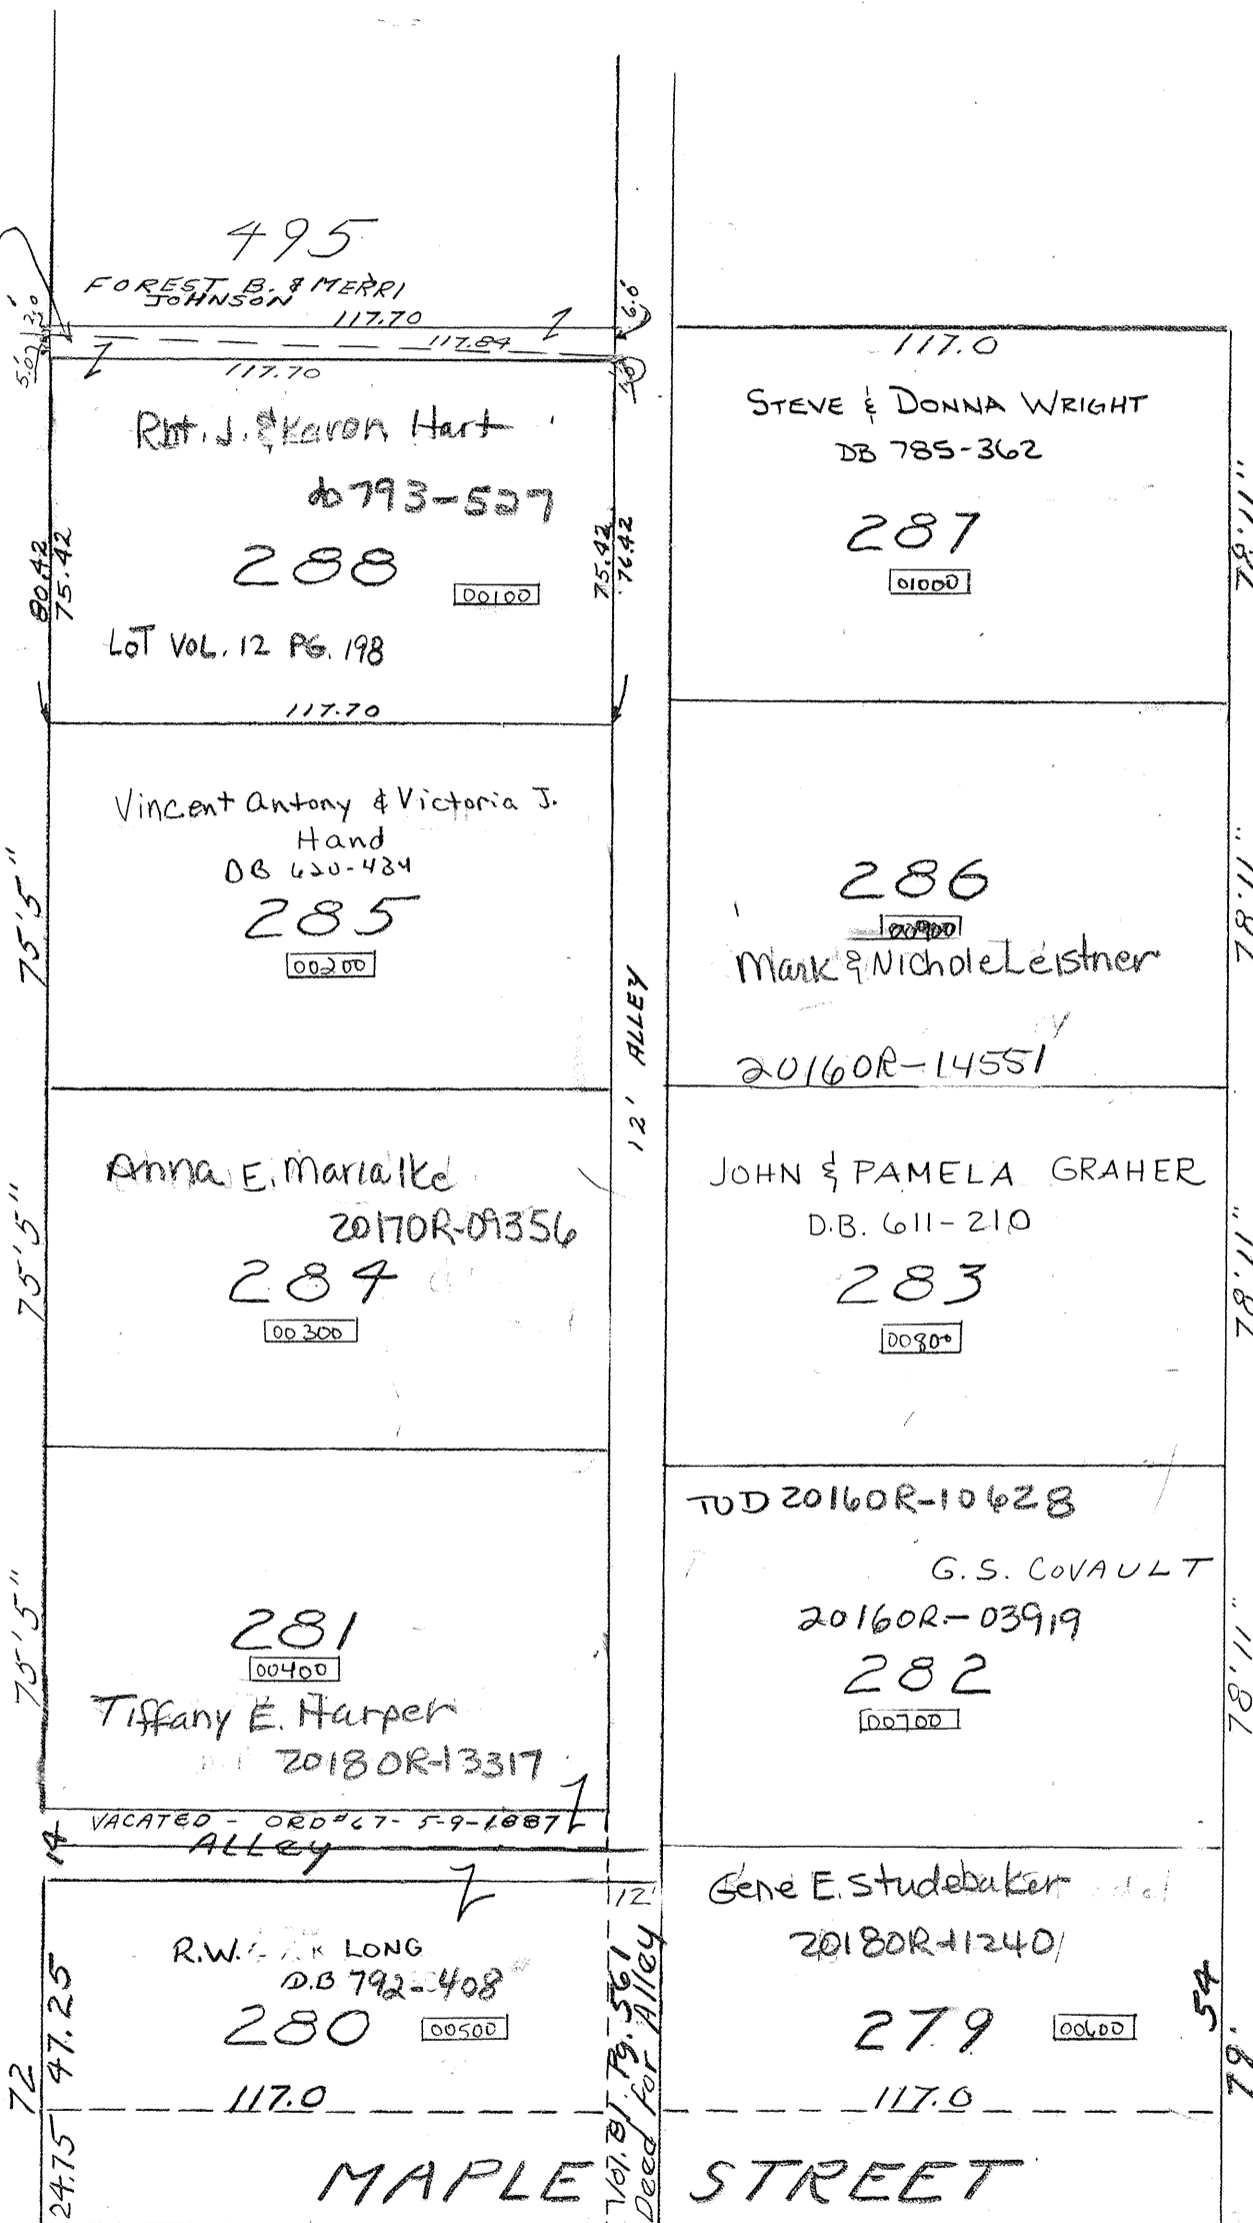 495
FOREST B. & MERRI
JOHNSON
117.70
117.84
117.70
2.0'
5.0'
6.0'
Rbt. J. & Karon Hart
db 793-527
288
00100
LOT VOL. 12 PG. 198
80.42
75.42
75.42
76.42
117.70
Vincent Antony & Victoria J.
Hand
DB 620-434
285
00200
75'5"
Anna E.
2017OR-09356
284
00300
75'5"
281
00400
Tiffany E. Harper
2018OR-13317
75'5"
VACATED - ORD #67- 5-9-1887
ALLEY
14
R.W. LONG
D.B 792-408
280
00500
117.0
47.25
72
24.75
12' ALLEY
12'
Vol. 81 Pg. 561
Deed for Alley
117.0
STEVE & DONNA WRIGHT
DB 785-362
287
01000
78'11"
286
00900
Mark & Nichole Leistner
2016OR-14551
78'11"
JOHN & PAMELA GRAHER
D.B. 611-210
283
00800
78'11"
TOD 2016OR-10628
G.S. COVAULT
2016OR-03919
282
00700
78'11"
Gene E. Studebaker
2018OR-11240
279
00600
54
79'
117.0
MAPLE STREET